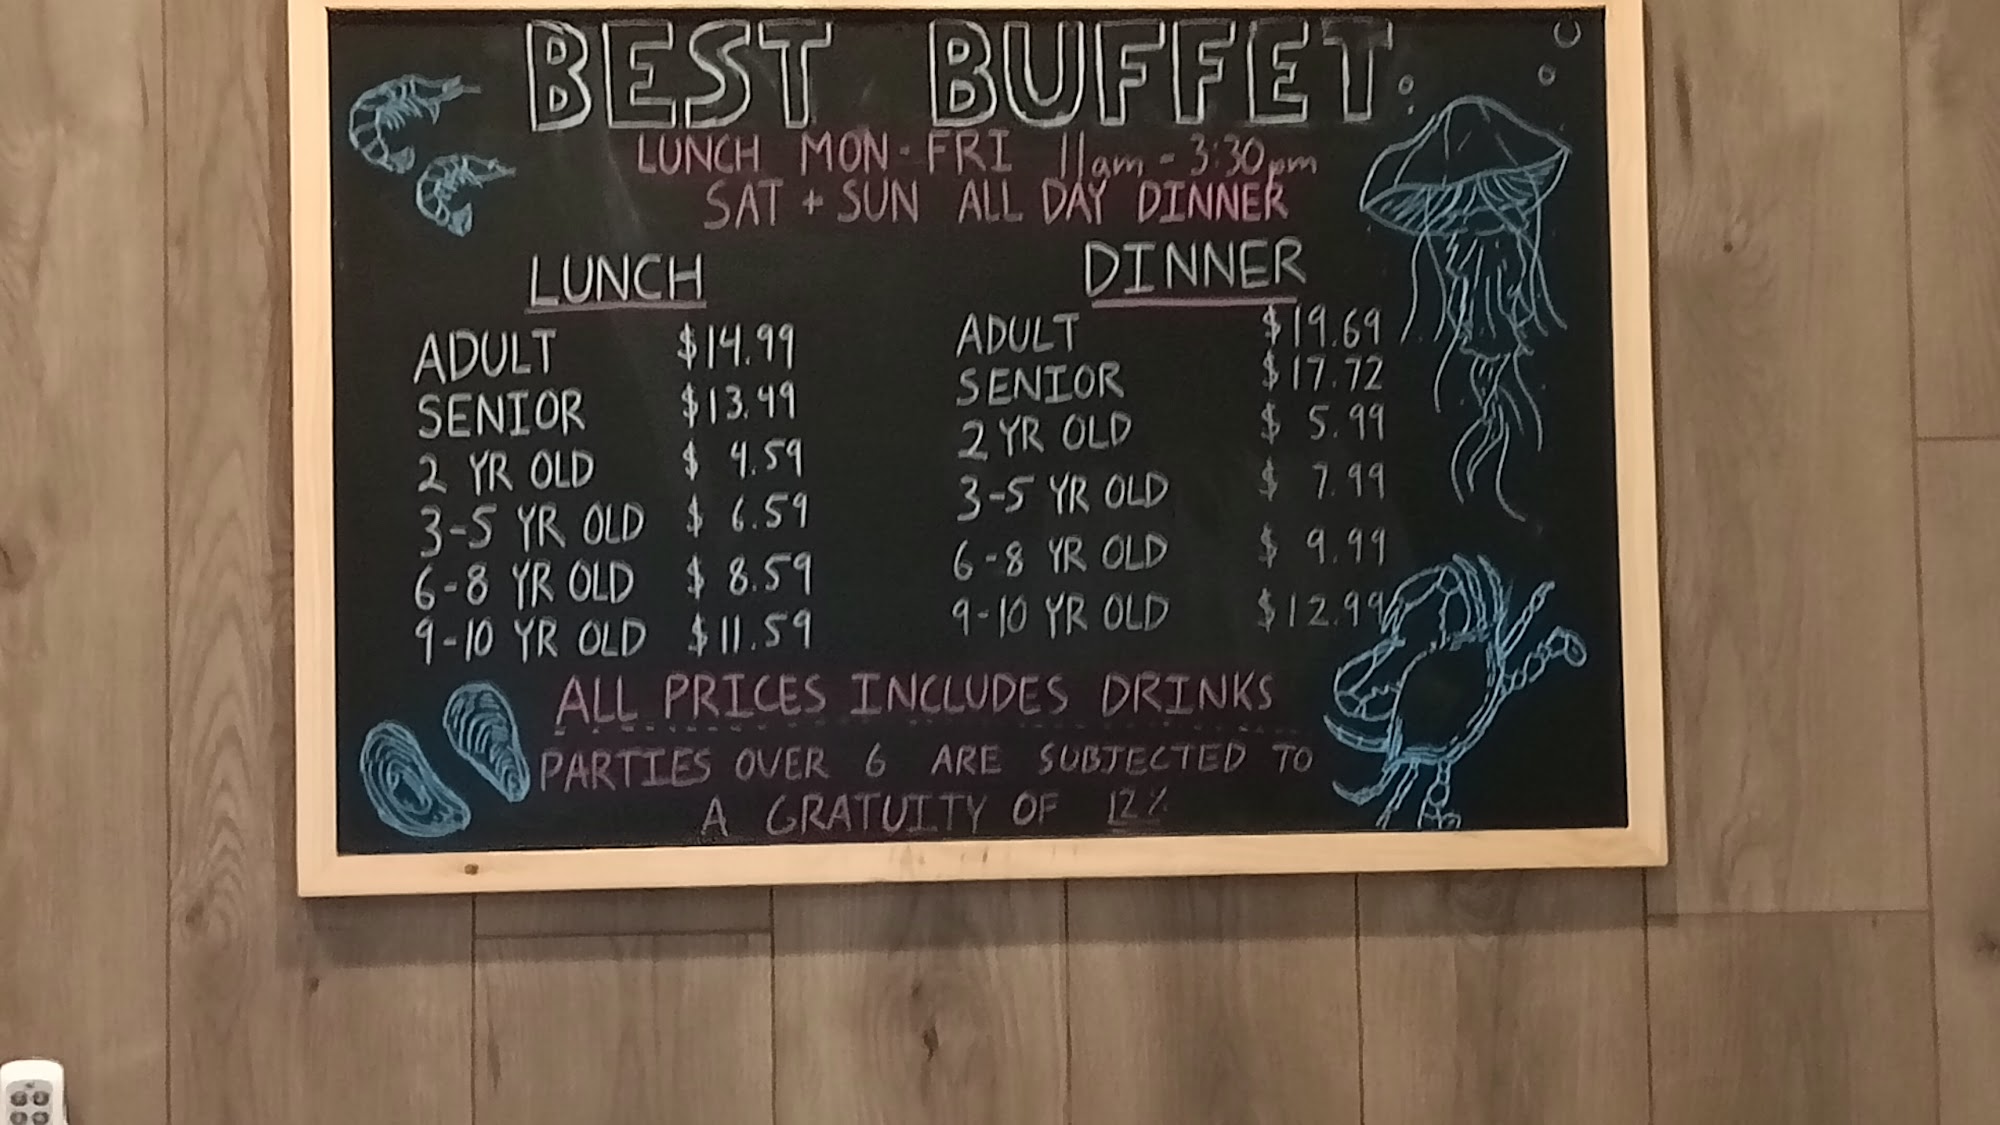 BEST BUFFET
LUNCH MON-FRI 11am-3:30pm
SAT + SUN ALL DAY DINNER
LUNCH
ADULT $14.99
SENIOR $13.49
2 YR OLD $ 4.59
3-5 YR OLD $ 6.59
6-8 YR OLD $ 8.59
9-10 YR OLD $11.59
DINNER
ADULT $19.69
SENIOR $17.72
2 YR OLD $ 5.99
3-5 YR OLD $ 7.99
6-8 YR OLD $ 9.99
9-10 YR OLD $12.99
ALL PRICES INCLUDES DRINKS
PARTIES OVER 6 ARE SUBJECTED TO
A GRATUITY OF 12%